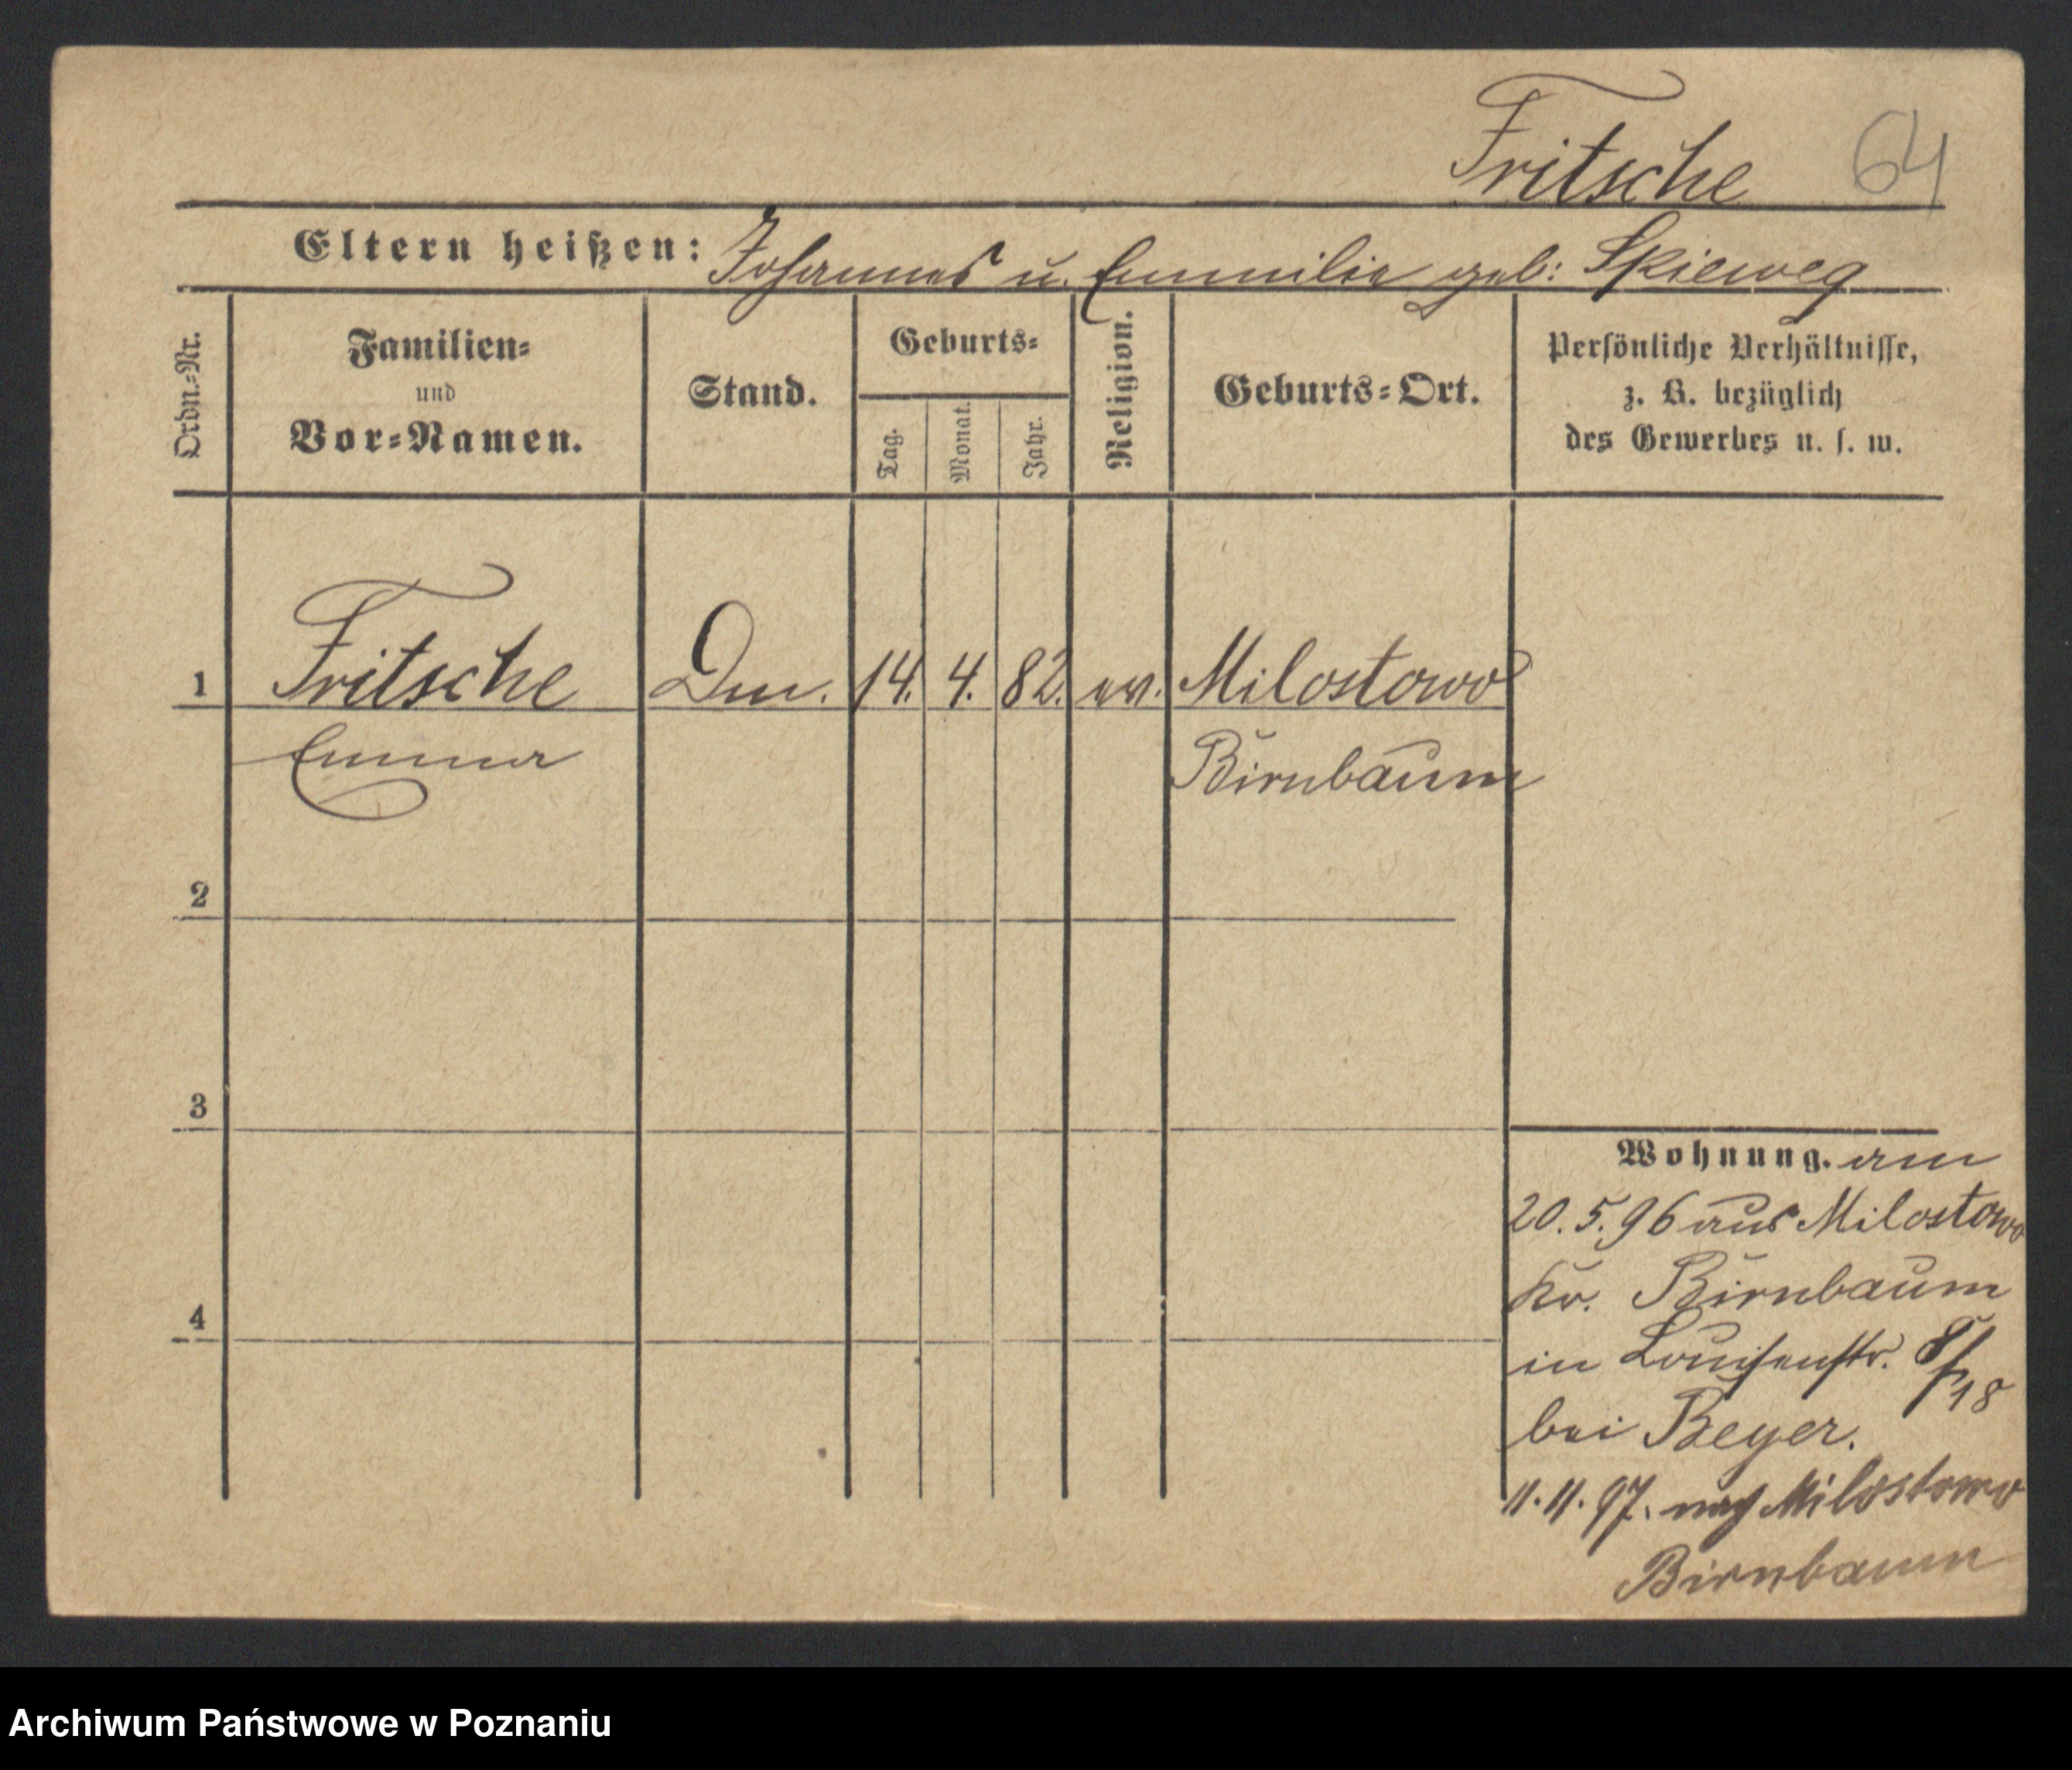 Fritsche 64
Eltern heißen: Johannes u. Emmilie geb: Skieweg
Ordn.-Nr.
Familien-
und
Vor-Namen.
Stand.
Geburts-
Tag.
Monat.
Jahr.
Religion.
Geburts-Ort.
Persönliche Verhältnisse,
z. B. bezüglich
des Gewerbes u. s. w.
1 Fritsche 14. 4. 82. ev. Milostowo
Emma Birnbaum
2
3
4
Wohnung. am
20.5.96 aus Milostowo
Kr. Birnbaum
in Louisenstr. 8/18
bei Beyer.
11.11.97. nach Milostowo
Birnbaum
Archiwum Państwowe w Poznaniu